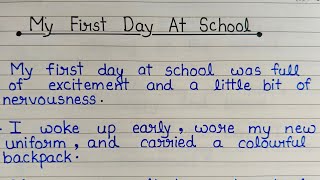 My First Day At School
My first day at school was full
of excitement and a little bit of
nervousness.
I woke up early, wore my new
uniform, and carried a colourful
backpack.